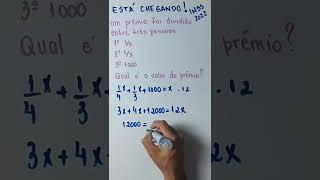 3º 1000
Qual é
1/4 x + 1/3
3x + 4x
ESTÁ CHEGANDO!
um prêmio foi dividido
entre três pessoas
1º 1/4
2º 1/3
3º 1000
Qual é o valor do prêmio?
1/4 x + 1/3 x + 1000 = x . 12
3x + 4x + 12000 = 12x
12000 =
prêmio?
. 12
12x